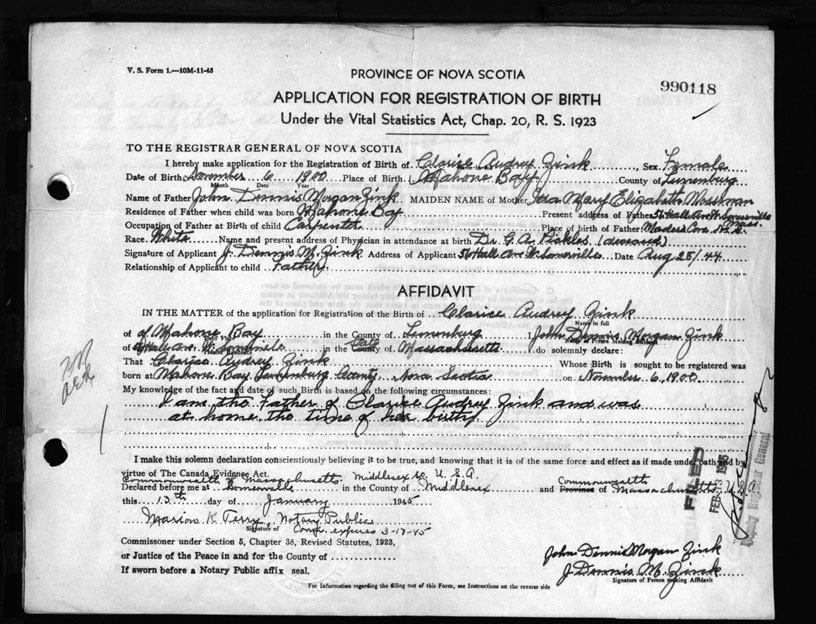 V. S. Form 1.—10M-11-43
PROVINCE OF NOVA SCOTIA
990118
APPLICATION FOR REGISTRATION OF BIRTH
Under the Vital Statistics Act, Chap. 20, R. S. 1923
TO THE REGISTRAR GENERAL OF NOVA SCOTIA
I hereby make application for the Registration of Birth of Clarice Audrey Zink, Sex Female
Date of Birth November 6 1900 Place of Birth Mahone Bay County of Lunenburg
Month Date Year
Name of Father John Dennis Morgan Zink MAIDEN NAME of Mother Ida Mary Elizabeth Mossman
Residence of Father when child was born Mahone Bay Present address of Father 56 Hall Ave W. Somerville Mass.
Occupation of Father at Birth of child Carpenter Place of birth of Father Maders Cove N.S.
Race White Name and present address of Physician in attendance at birth Dr. G. A. Pickles (deceased)
Signature of Applicant J. Dennis M. Zink Address of Applicant 56 Hall Ave W. Somerville Date Aug 25/44
Relationship of Applicant to child Father
AFFIDAVIT
IN THE MATTER of the application for Registration of the Birth of Clarice Audrey Zink
Name in full
of Mahone Bay in the County of Lunenburg I John Dennis Morgan Zink
of Hall Ave W. Somerville in the County State of Massachusetts do solemnly declare:
That Clarice Audrey Zink Whose Birth is sought to be registered was
born at Mahone Bay Lunenburg County, Nova Scotia on November 6, 1900
My knowledge of the fact and date of such Birth is based on the following circumstances:
I am the Father of Clarice Audrey Zink and was
at home the time of her birth.
I make this solemn declaration conscientiously believing it to be true, and knowing that it is of the same force and effect as if made under oath and by
virtue of The Canada Evidence Act.
Commonwealth of Massachusetts Middlesex ss. U.S.A
Declared before me at Somerville in the County of Middlesex and Province Commonwealth of Massachusetts U.S.A
this 13th day of January 1945
Marion K Terry, Notary Public
Signature of
Com. expires 3-17-45
Commissoner under Section 5, Chapter 38, Revised Statutes, 1923,
or Justice of the Peace in and for the County of
If sworn before a Notary Public affix seal.
John Dennis Morgan Zink
J. Dennis M. Zink
Signature of Person making Affidavit
For Information regarding the filling out of this Form, see Instructions on the reverse side
FILED
FEB 13 1945
Deputy Registrar General